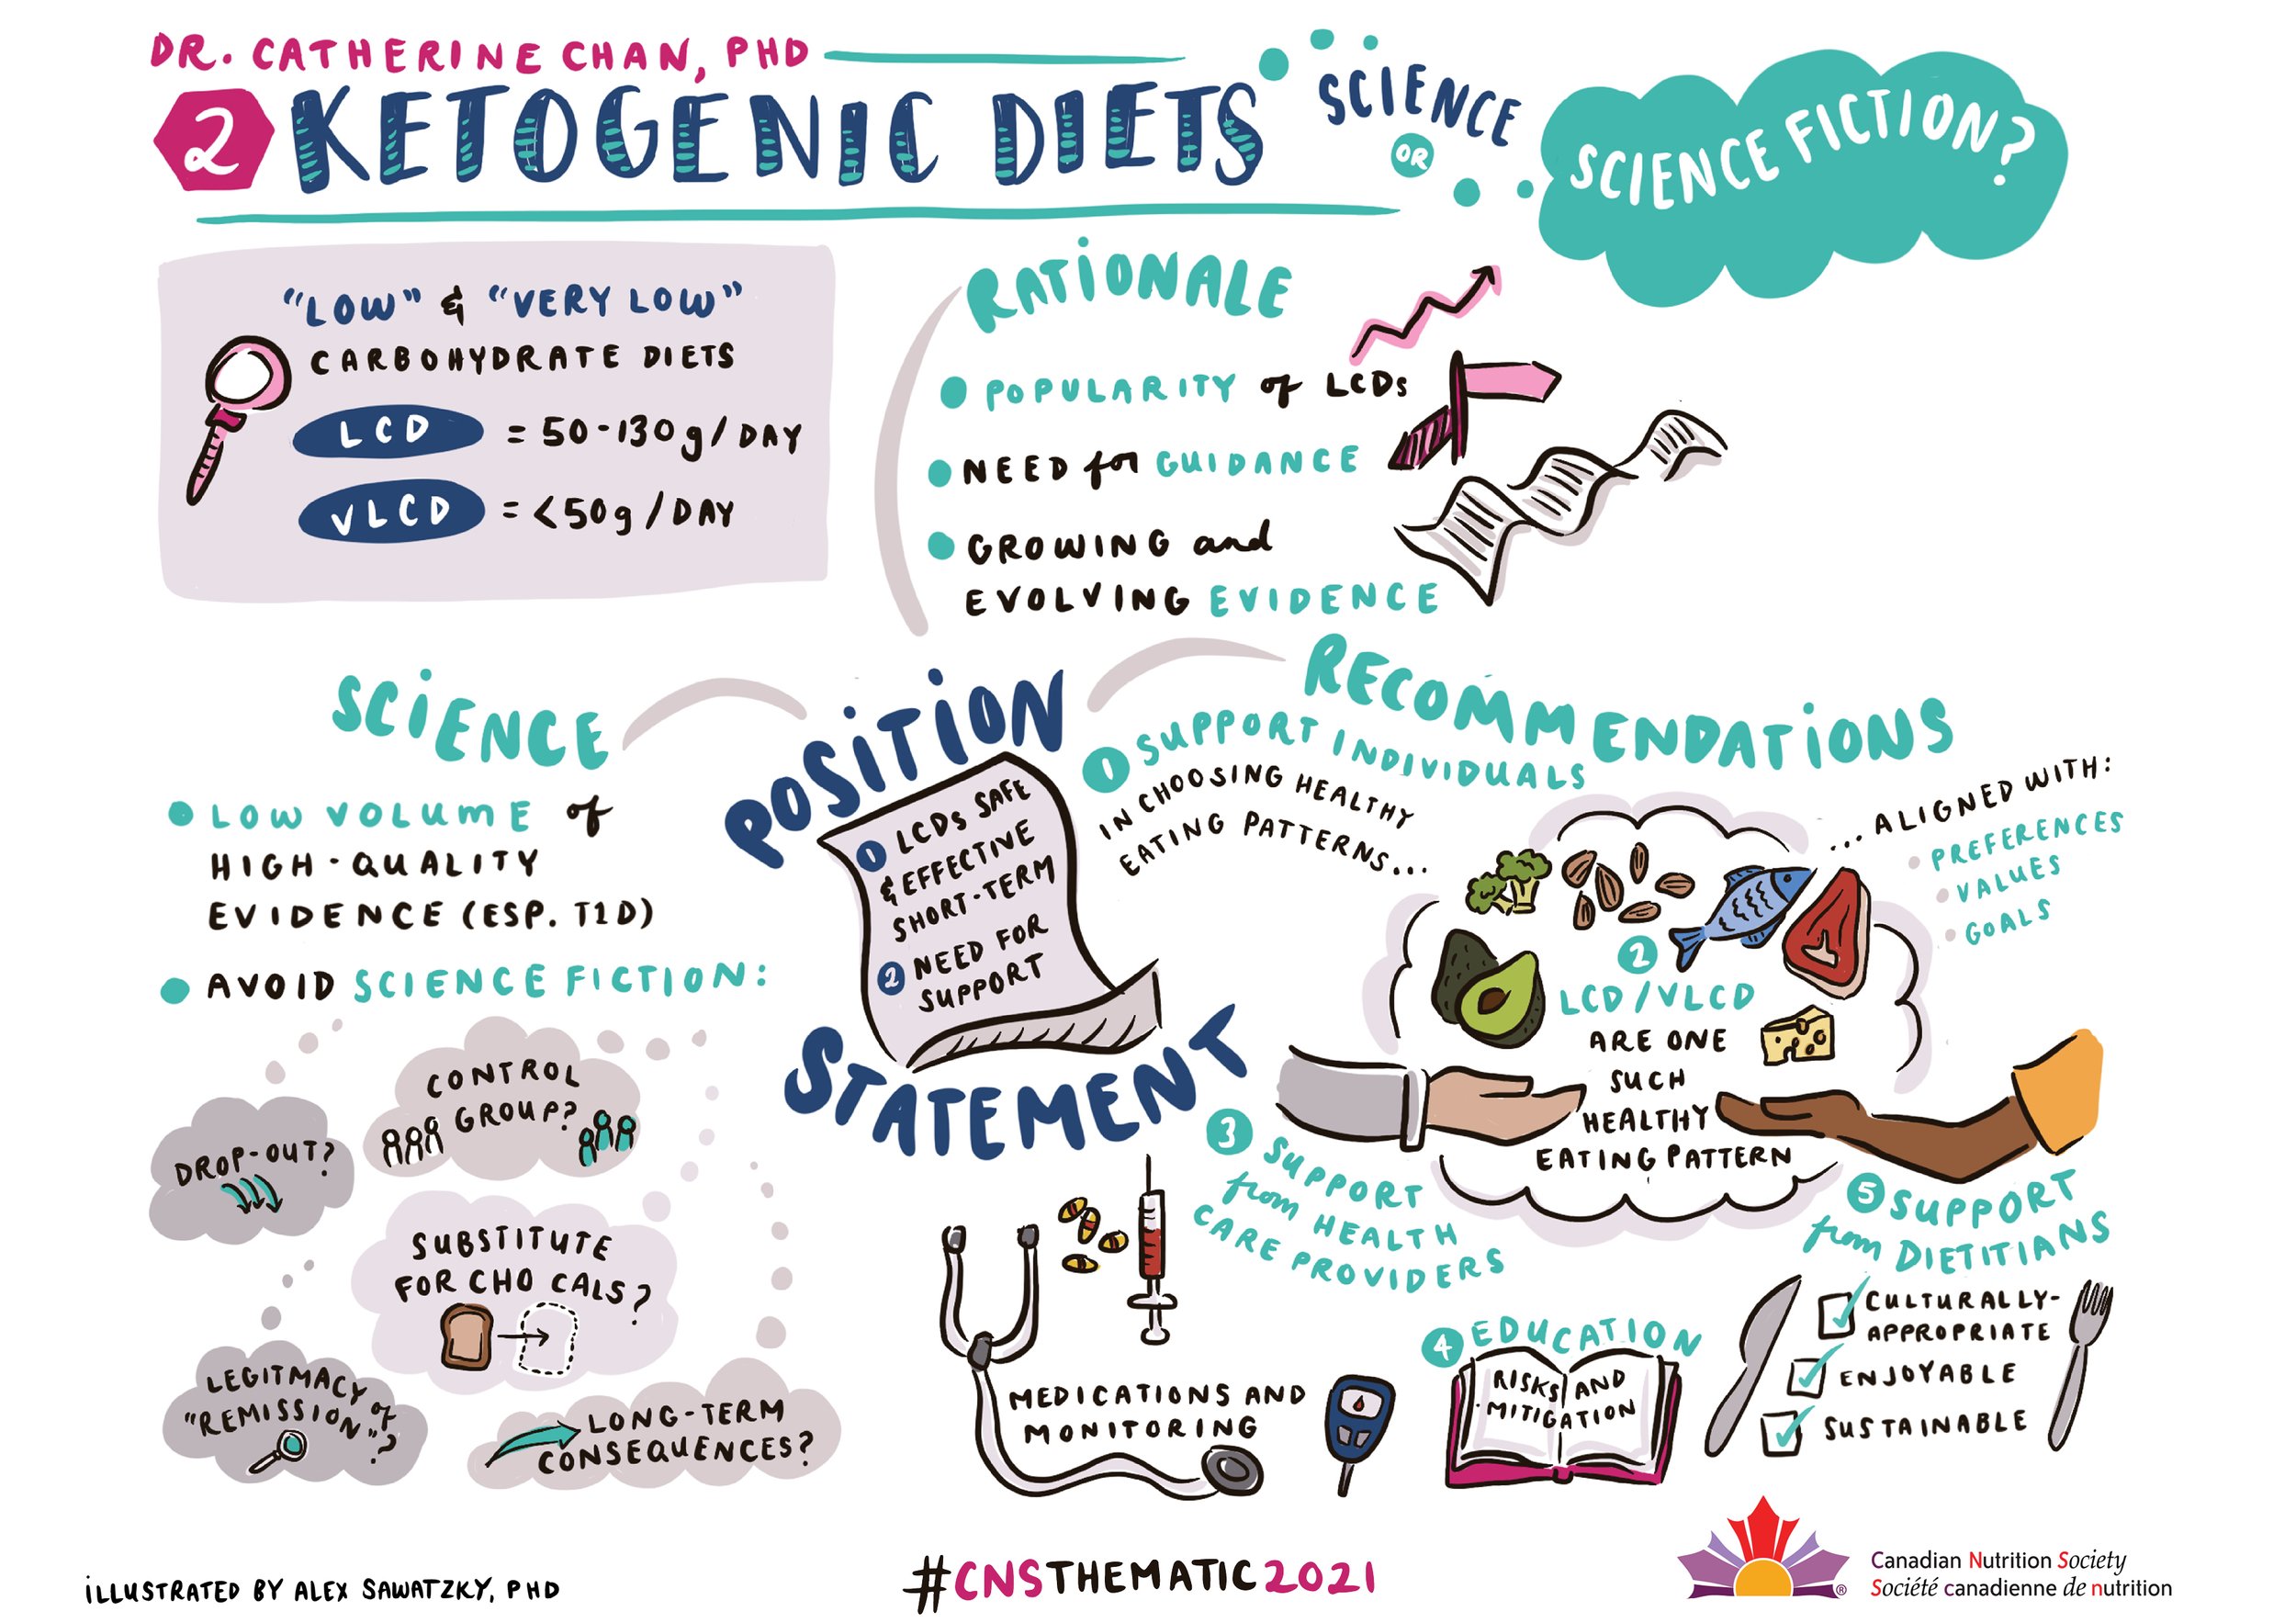 DR. CATHERINE CHAN, PHD
2 KETOGENIC DIETS
SCIENCE
OR
SCIENCE FICTION?
"LOW" & "VERY LOW"
CARBOHYDRATE DIETS
LCD = 50-130g/DAY
VLCD = <50g/DAY
RATIONALE
POPULARITY of LCDs
NEED for GUIDANCE
GROWING and
EVOLVING EVIDENCE
SCIENCE
LOW VOLUME of
HIGH-QUALITY
EVIDENCE (ESP. T1D)
AVOID SCIENCE FICTION:
DROP-OUT?
CONTROL
GROUP?
SUBSTITUTE
FOR CHO CALS?
LEGITMACY of
"REMISSION"?
LONG-TERM
CONSEQUENCES?
POSITION
1 LCDs SAFE
& EFFECTIVE
SHORT-TERM
2 NEED FOR
SUPPORT
STATEMENT
RECOMMENDATIONS
1 SUPPORT INDIVIDUALS
IN CHOOSING HEALTHY
EATING PATTERNS...
...ALIGNED WITH:
PREFERENCES
VALUES
GOALS
2
LCD/VLCD
ARE ONE
SUCH
HEALTHY
EATING PATTERN
3 SUPPORT
from HEALTH
CARE PROVIDERS
MEDICATIONS AND
MONITORING
4 EDUCATION
RISKS AND
MITIGATION
5 SUPPORT
from DIETITIANS
CULTURALLY-
APPROPRIATE
ENJOYABLE
SUSTAINABLE
ILLUSTRATED BY ALEX SAWATZKY, PHD
#CNSTHEMATIC2021
®
Canadian Nutrition Society
Société canadienne de nutrition